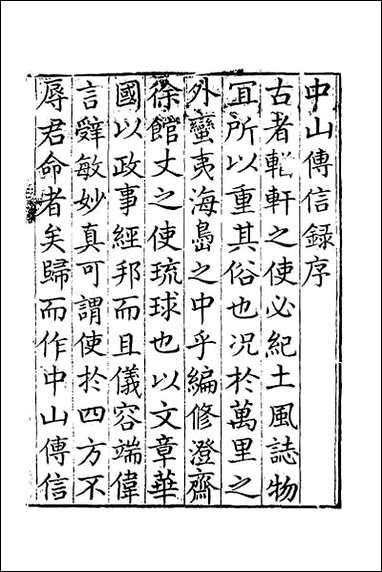 中山傳信録序
古者輶軒之使必紀土風誌物
宜所以重其俗也况於萬里之
外蠻夷海島之中乎編修澄齋
徐館丈之使琉球也以文章華
國以政事經邦而且儀容端偉
言辭敏妙真可謂使於四方不
辱君命者矣歸而作中山傳信